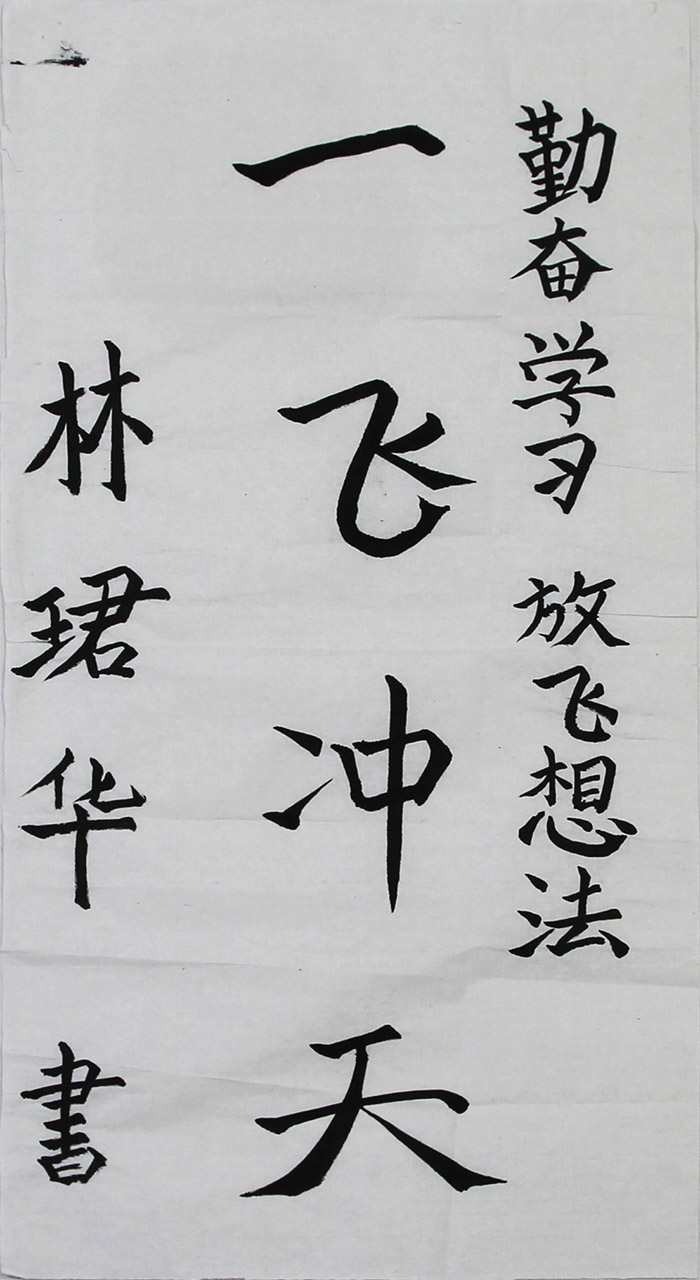 勤奋学习 放飞想法
一飞冲天
林珺华 書